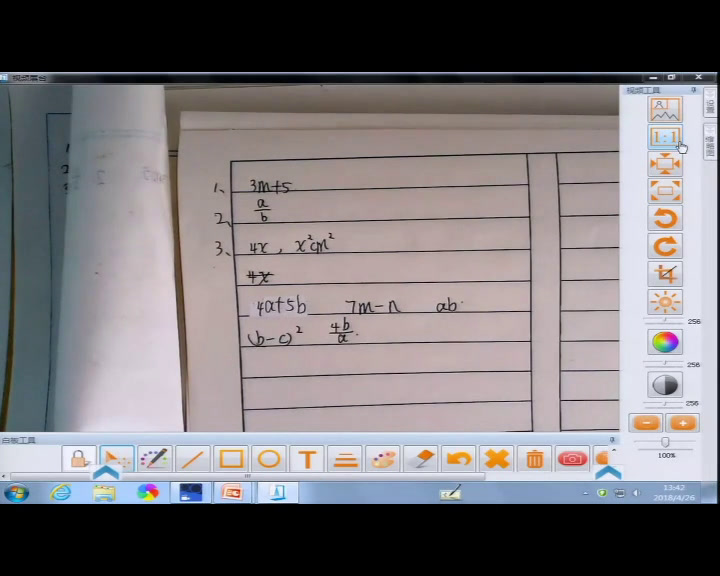 视频展台
视频工具
1、 3m+5
2、 a/b
3、 4x , x²cm²
4x
4a+5b 7m-n ab
(b-c)² 4b/a.
1:1
256
256
256
100%
设置
白板工具
T
13:42
2018/4/26